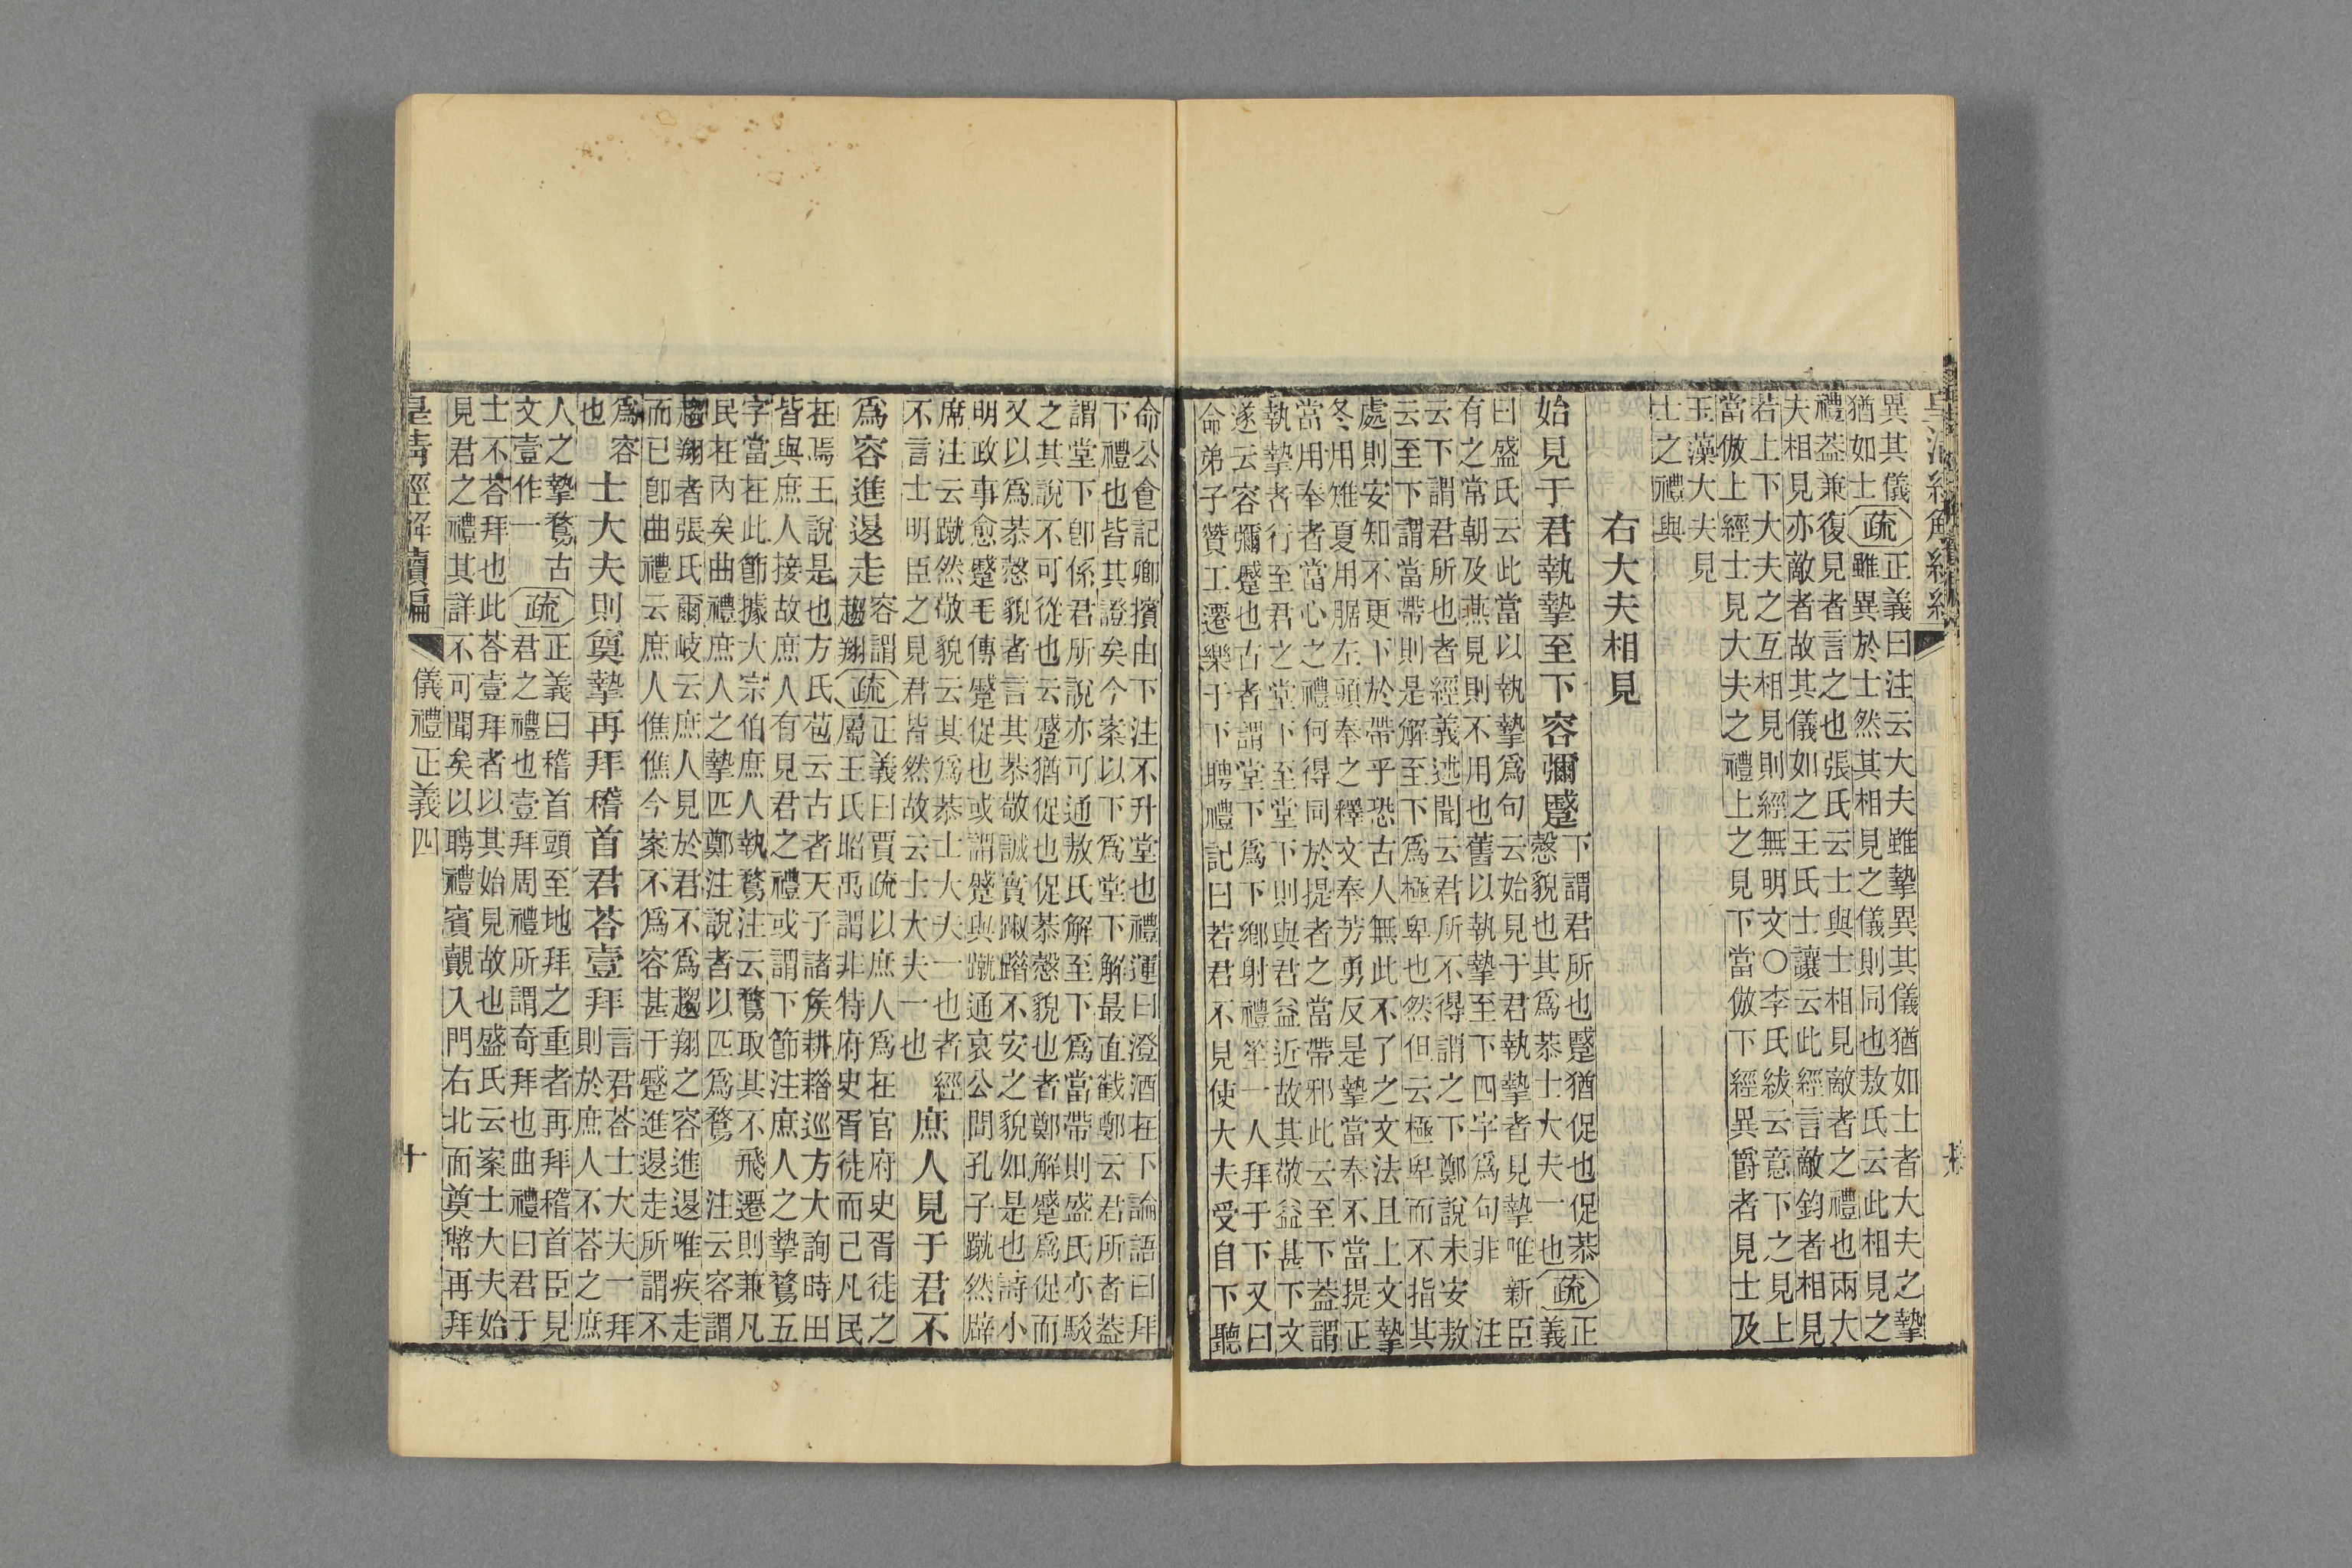 皇清經解續編
異其儀
猶如士
疏
正義曰注云大夫雖摯異其儀猶如士者大夫之摯
雖異於士然其相見之儀則同也敖氏云此相見之
禮葢兼復見者言之也張氏云士與士相見敵者之禮也兩大
夫相見亦敵者故其儀如之王氏士讓云此經言敵鈞者相見
若上下大夫之互相見則經無明文○李氏紱云意下之見上
當倣上經士見大夫之禮上之見下當倣下經異爵者見士及
玉藻大夫見
士之禮與
右大夫相見
始見于君執摯至下容彌蹙
下謂君所也蹙猶促也促恭
慤貌也其爲恭士大夫一也
疏
正
義
曰盛氏云此當以執摯爲句云始見于君執摯者見摯唯新臣
有之常朝及燕見則不用也舊以執摯至下四字爲句非 注
云下謂君所也者經義述聞云君所不得謂之下鄭說未安敖
云至下謂當帶則是解至下爲極卑也然但云極卑而不指其
處則安知不更下於帶乎恐古人無此不了之文法且上文摯
冬用雉夏用腒左頭奉之釋文奉芳勇反是摯當奉不當提正
當用奉者當心之禮何得同於提者之當帶邪此云至下葢謂
執摯者行至君之堂下至堂下則與君益近故其敬益甚下文
遂云容彌蹙也古者謂堂下爲下鄉射禮笙一人拜于下又曰
命弟子贊工遷樂于下聘禮記曰若君不見使大夫受自下聽
命公食記卿擯由下注不升堂也禮運曰澄酒在下論語曰拜
下禮也皆其證矣今案以下爲堂下解最直截鄭云君所者葢
謂堂下卽係君所說亦可通敖氏解至下爲當帶則盛氏亦駁
之其說不可從也云蹙猶促也促恭慤貌也者鄭解蹙爲促而
又以爲恭慤貌者言其恭敬誠實踧踖不安之貌如是也詩小
明政事愈蹙毛傳蹙促也或謂蹙與蹴通哀公問孔子蹴然辟
席注云蹴然敬貌云其爲恭士大夫一也者 經
不言士明臣之見君皆然故云士大夫一也
庶人見于君不
爲容進退走
容謂
趨翔
疏
正義曰賈疏以庶人爲在官府史胥徒之
屬王氏昭禹謂非特府史胥徒而已凡民
在焉王說是也方氏苞云古者天子諸矦耕耤巡方大詢時田
皆與庶人接故庶人有見君之禮或謂下節注庶人之摯鶩五
字當在此節據大宗伯庶人執鶩注云鶩取其不飛遷則兼凡
民在內矣曲禮庶人之摯匹鄭注說者以匹爲鶩 注云容謂
趨翔者張氏爾岐云庶人見於君不爲趨翔之容進退唯疾走
而已卽曲禮云庶人僬僬今案不爲容甚于蹙進退走所謂不
爲容
也
士大夫則奠摯再拜稽首君荅壹拜
言君荅士大夫一拜
則於庶人不荅之庶
人之摯鶩古
文壹作一
疏
正義曰稽首頭至地拜之重者再拜稽首臣見
君之禮也壹拜周禮所謂奇拜也曲禮曰君于
士不荅拜也此荅壹拜者以其始見故也盛氏云案士大夫始
見君之禮其詳不可聞矣以聘禮賓覿入門右北面奠幣再拜
皇清經解續編
儀禮正義四
十